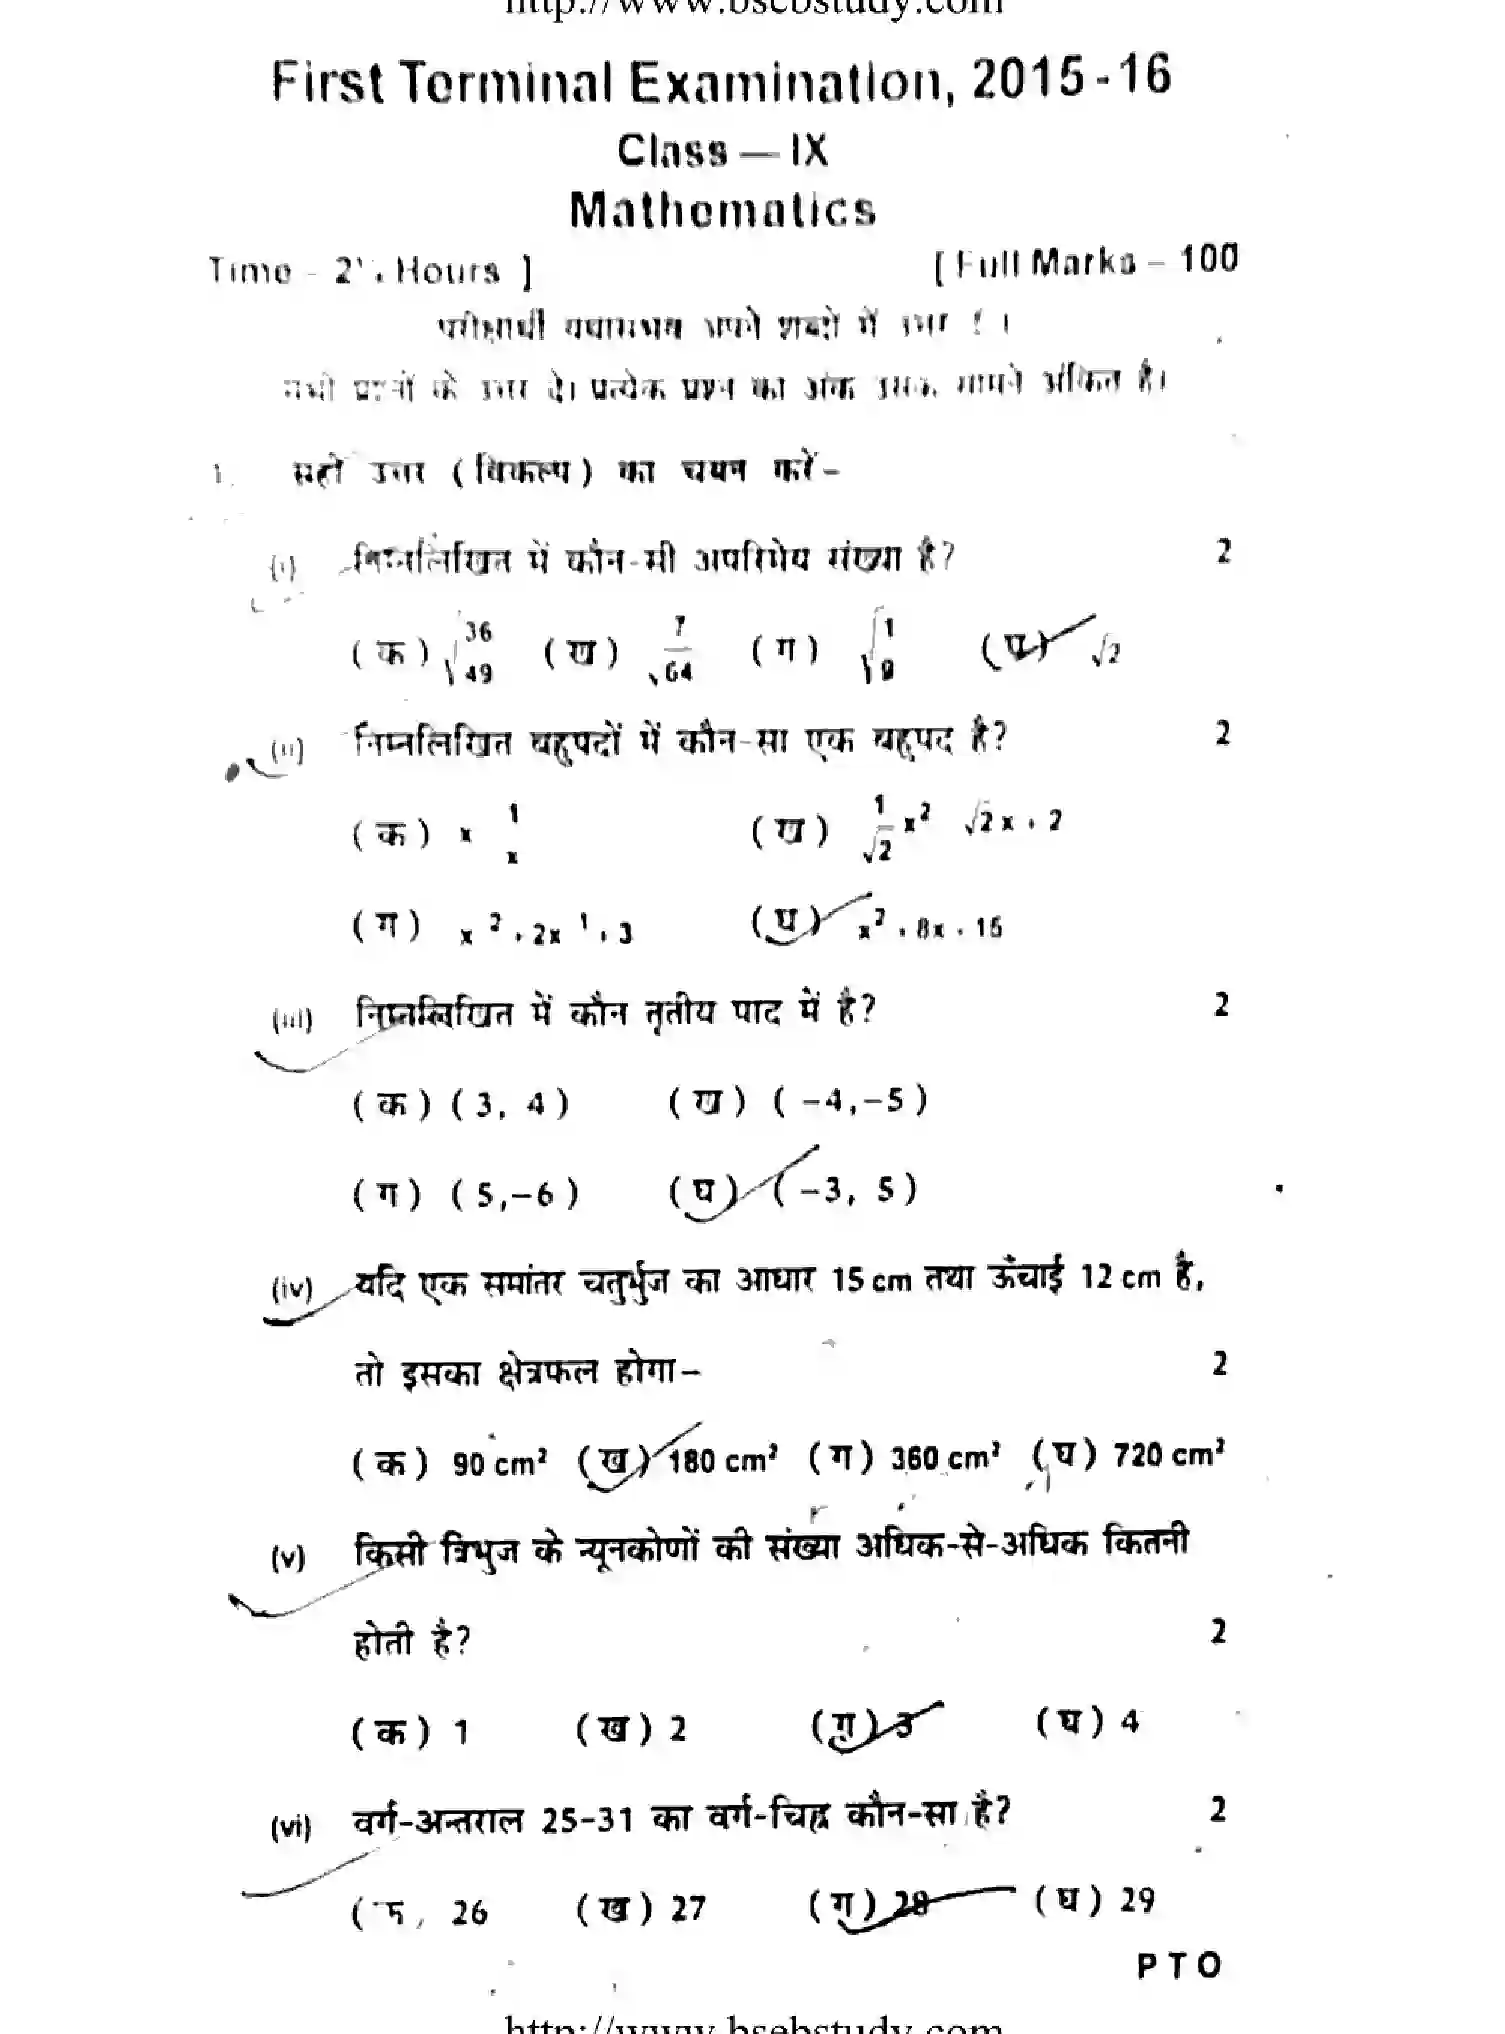 http://www.bsebstudy.com
First Terminal Examination, 2015-16
Class — IX
Mathematics
Time - 2 Hours ]
[ Full Marks – 100
परीक्षार्थी यथासंभव अपने शब्दों में उत्तर दें।
सभी प्रश्नों के उत्तर दें। प्रत्येक प्रश्न का अंक उसके सामने अंकित है।
1. सही उत्तर ( विकल्प ) का चयन करें–
(i) निम्नलिखित में कौन-सी अपरिमेय संख्या है? 2
(क) √36/49 (ख) 7/√64 (ग) √1/9 (घ) √2
(ii) निम्नलिखित बहुपदों में कौन-सा एक बहुपद है? 2
(क) x 1/x (ख) 1/√2 x² √2x + 2
(ग) x 2 + 2x 1 + 3 (घ) x² + 8x + 15
(iii) निम्नलिखित में कौन तृतीय पाद में है? 2
(क) ( 3, 4 ) (ख) ( –4,–5 )
(ग) ( 5,–6 ) (घ) ( –3, 5 )
(iv) यदि एक समांतर चतुर्भुज का आधार 15 cm तथा ऊँचाई 12 cm है,
तो इसका क्षेत्रफल होगा– 2
(क) 90 cm² (ख) 180 cm² (ग) 360 cm² (घ) 720 cm²
(v) किसी त्रिभुज के न्यूनकोणों की संख्या अधिक-से-अधिक कितनी
होती है? 2
(क) 1 (ख) 2 (ग) 3 (घ) 4
(vi) वर्ग-अन्तराल 25–31 का वर्ग-चिह्न कौन-सा है? 2
(क) 26 (ख) 27 (ग) 28 (घ) 29
P T O
http://www.bsebstudy.com